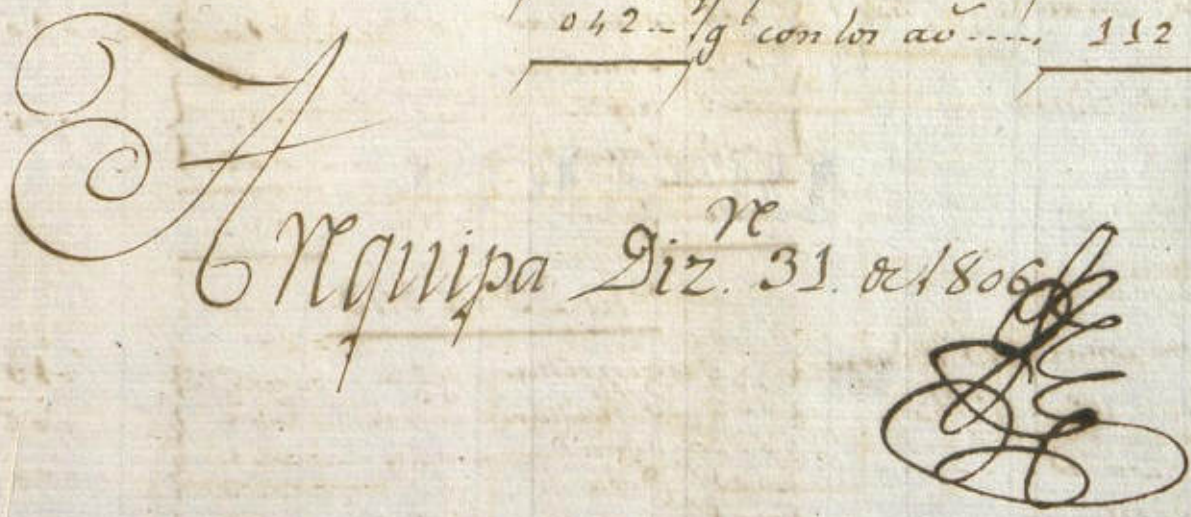 042 -- con los ao ---- 112
Arequipa Diz.re 31. de 1806